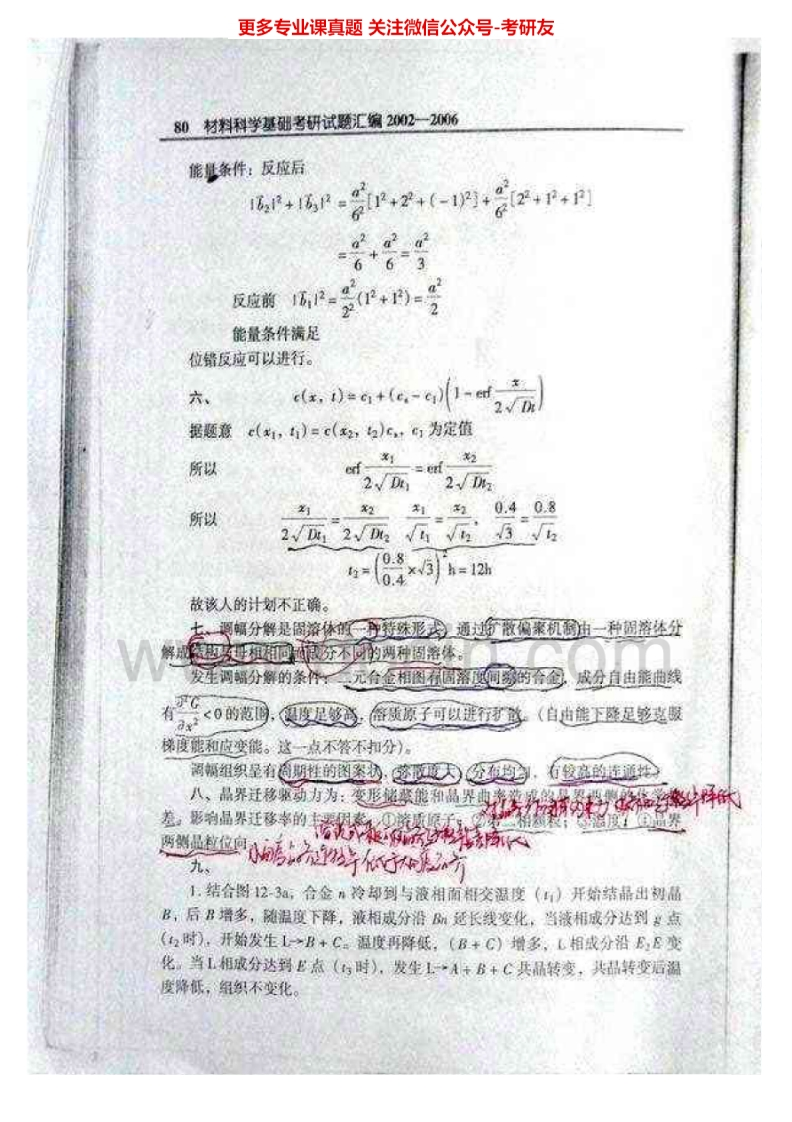 更多专业课真题 关注微信公众号-考研友
80 材料科学基础考研试题汇编 2002—2006
能量条件：反应后
|b⃗₂|² + |b⃗₃|² = a²/6²[1² + 2² + (-1)²] + a²/6²[2² + 1² + 1²]
= a²/6 + a²/6 = a²/3
反应前 |b⃗₁|² = a²/2²(1² + 1²) = a²/2
能量条件满足
位错反应可以进行。
六、 c(x, t) = c₁ + (cₛ - c₁)(1 - erf x/(2√Dt))
据题意 c(x₁, t₁) = c(x₂, t₂)cₛ, c₁ 为定值
所以 erf x₁/(2√Dt₁) = erf x₂/(2√Dt₂)
所以 x₁/(2√Dt₁) = x₂/(2√Dt₂) x₁/√t₁ = x₂/√t₂, 0.4/√3 = 0.8/√t₂
t₂ = (0.8/0.4 × √3)² h = 12h
故该人的计划不正确。
七、调幅分解是固溶体的一种特殊形式，通过扩散偏聚机制由一种固溶体分
解成结构与母相相同而成分不同的两种固溶体。
发生调幅分解的条件：二元合金相图有固溶度间隙的合金，成分自由能曲线
有 ∂²G/∂x² < 0 的范围，温度足够高，溶质原子可以进行扩散。（自由能下降足够克服
梯度能和应变能。这一点不答不扣分）。
调幅组织呈有周期性的图案状，弥散度大，分布均匀，有较高的连通性。
八、晶界迁移驱动力为：变形储藏能和晶界曲率造成的晶界两侧的化学
差。影响晶界迁移率的主要因素：①溶质原子；②第二相颗粒；③温度；④晶界
两侧晶粒位向
九、
1. 结合图 12-3a，合金 n 冷却到与液相面相交温度（t₁）开始结晶出初晶
B，后 B 增多，随温度下降，液相成分沿 Bn 延长线变化，当液相成分达到 g 点
（t₂ 时），开始发生 L→B + C。温度再降低，（B + C）增多，L 相成分沿 E₂E 变
化。当 L 相成分达到 E 点（t₃ 时），发生 L→A + B + C 共晶转变，共晶转变后温
度降低，组织不变化。